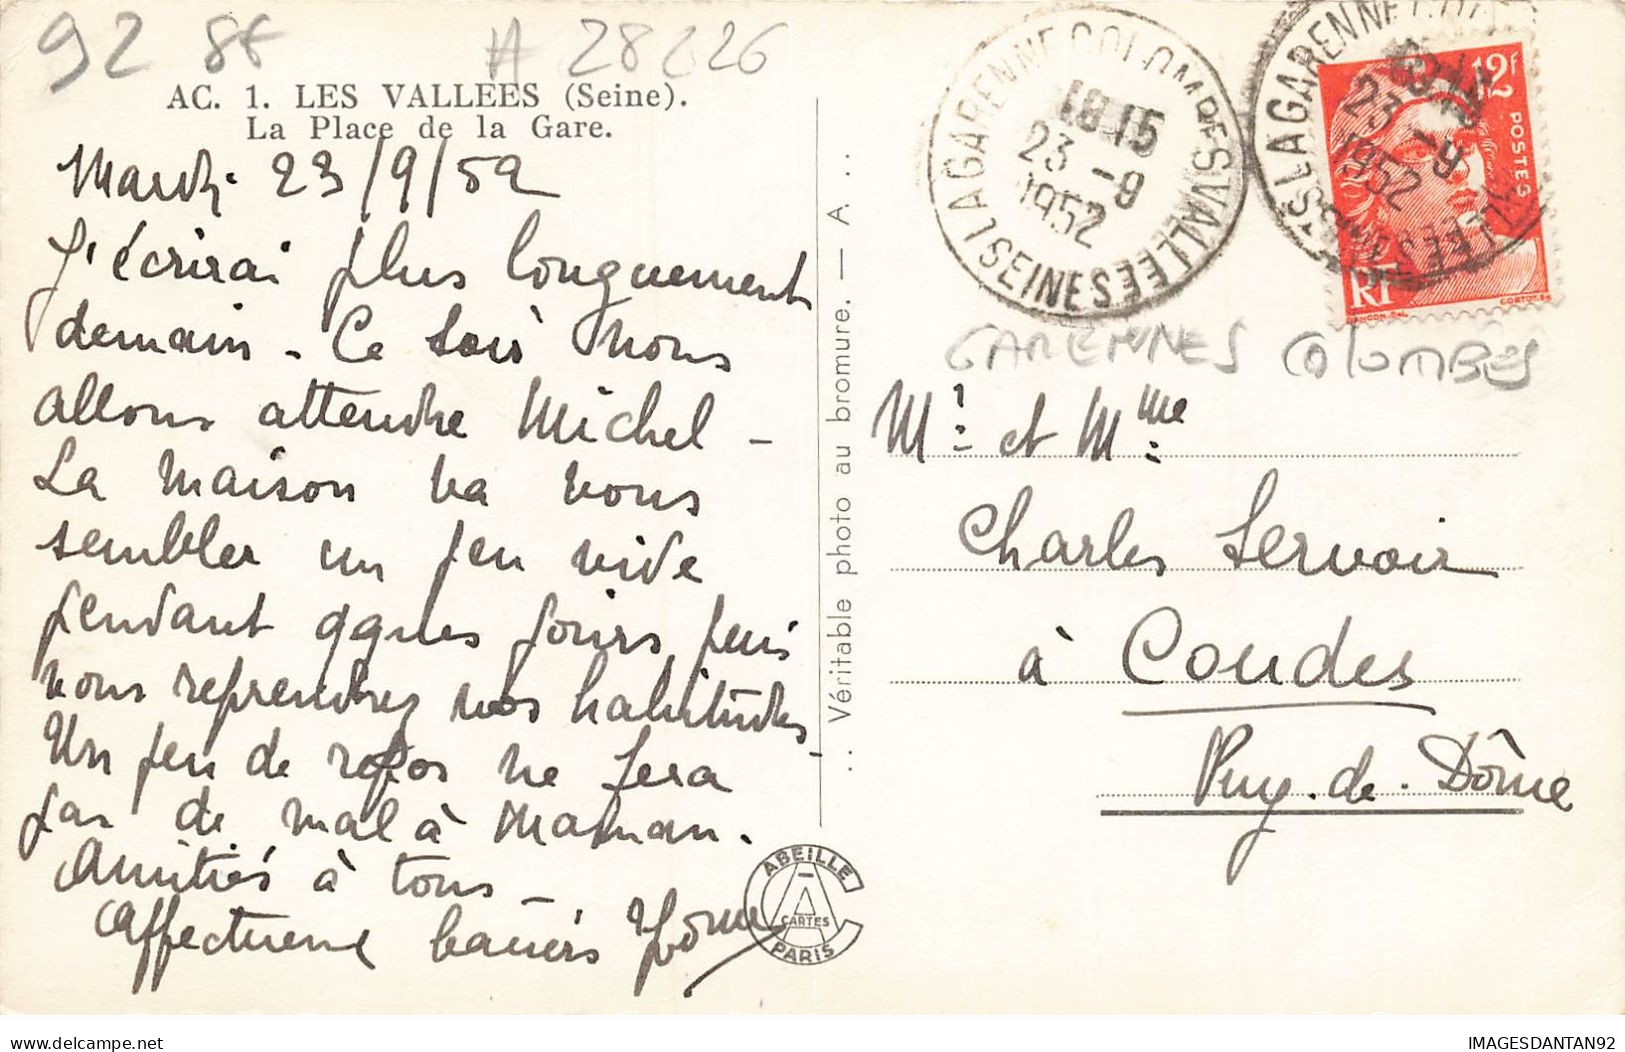 92 88
A 28226
AC. 1. LES VALLEES (Seine).
La Place de la Gare.
Mardi 23/9/52
J'écrirai plus longuement
demain - Ce soir nous
allons attendre Michel -
La maison va vous
sembler un peu vide
pendant qques jours puis
vous reprendrez vos habitudes
Un peu de repos ne fera
pas de mal à Maman.
Amitiés à tous -
Affectueux baisers Yvonne
.. Véritable photo au bromure. — A ..
ABEILLE
CARTES
PARIS
LA GARENNE COLOMBES VALLEES
SEINE
18 15
23 -9
1952
LA GARENNE
23 -9
1952
12F
POSTES
RF
GANDON-Del.
CORTOT.Sc
GARENNES COLOMBES
Mr et Mme
Charles Servoir
à Coudes
Puy-de-Dôme
IMAGESDANTAN92
delcampe.net